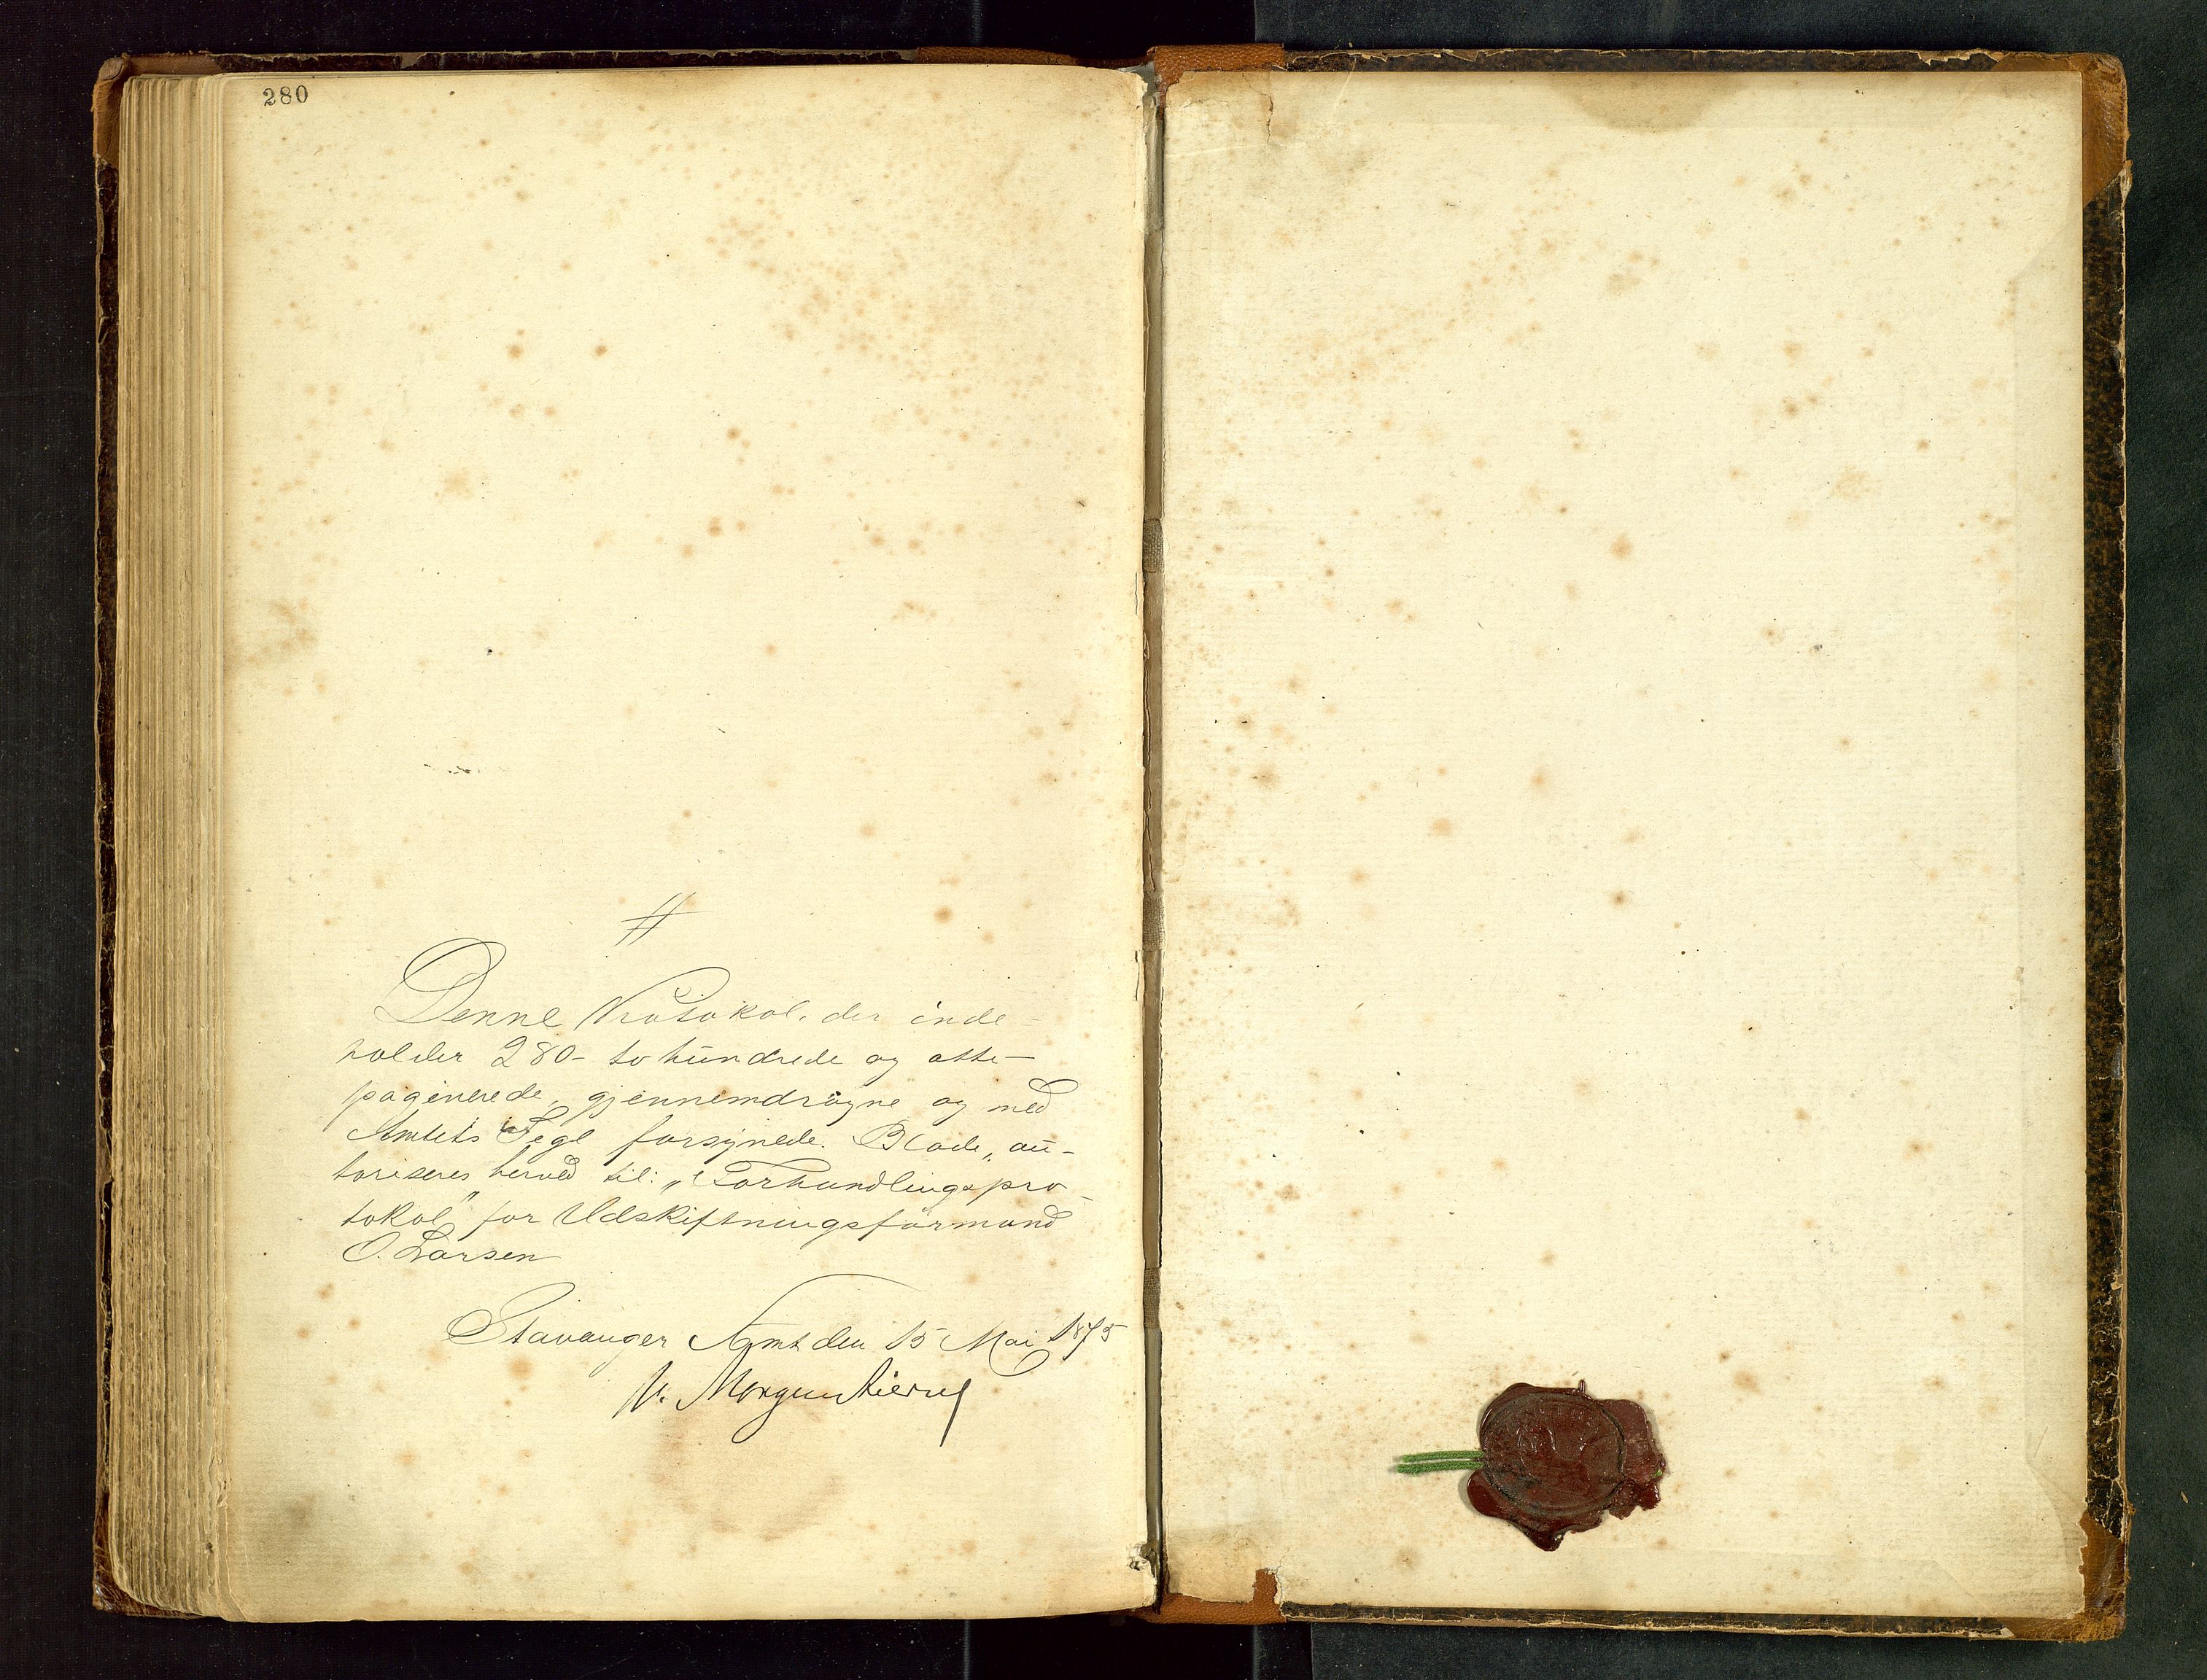 280
#
Denne Protokol, der inde-
holder 280 - to hundrede og otti -
paginerede, gjennemdragne og med
Amtets Segl forsynede Blade, au-
toriseres herved til: "Forhandlingspro-
tokol" for Udskiftningsformand
O. Larsen
Stavanger Amt den 15 Mai 1875